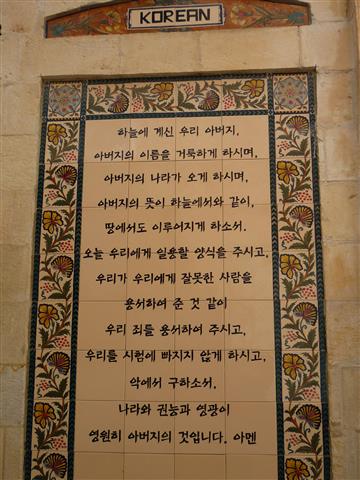 KOREAN
하늘에 계신 우리 아버지,
아버지의 이름을 거룩하게 하시며,
아버지의 나라가 오게 하시며,
아버지의 뜻이 하늘에서와 같이,
땅에서도 이루어지게 하소서.
오늘 우리에게 일용할 양식을 주시고,
우리가 우리에게 잘못한 사람을
용서하여 준 것 같이
우리 죄를 용서하여 주시고,
우리를 시험에 빠지지 않게 하시고,
악에서 구하소서,
나라와 권능과 영광이
영원히 아버지의 것입니다. 아멘